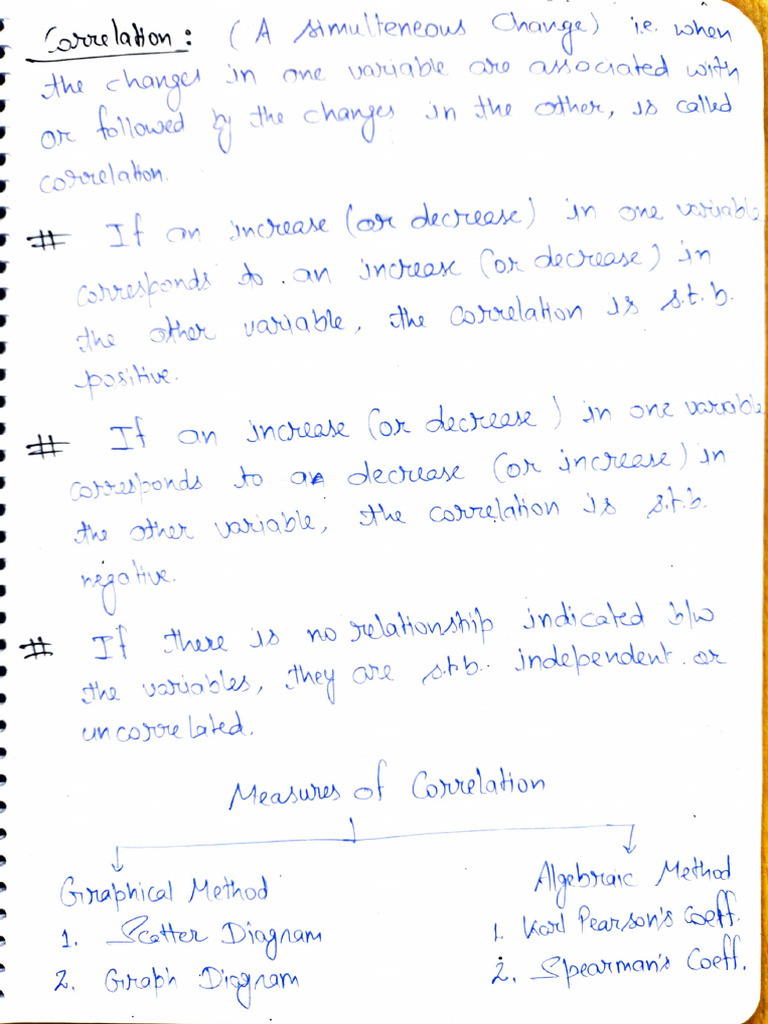 Correlation: (A simulteneous Change) i.e. when
the changes in one variable are associated with
or followed by the changes in the other, is called
correlation.
# If an increase (or decrease) in one variable
corresponds to an increase (or decrease) in
the other variable, the correlation is s.t.b.
positive.
# If an increase (or decrease) in one variable
corresponds to a decrease (or increase) in
the other variable, the correlation is s.t.b.
negative.
# If there is no relationship indicated b/w
the variables, they are s.t.b. independent or
uncorrelated.
Measures of Correlation
Graphical Method
1. Scatter Diagram
2. Graph Diagram
Algebraic Method
1. Karl Pearson's Coeff.
2. Spearman's Coeff.